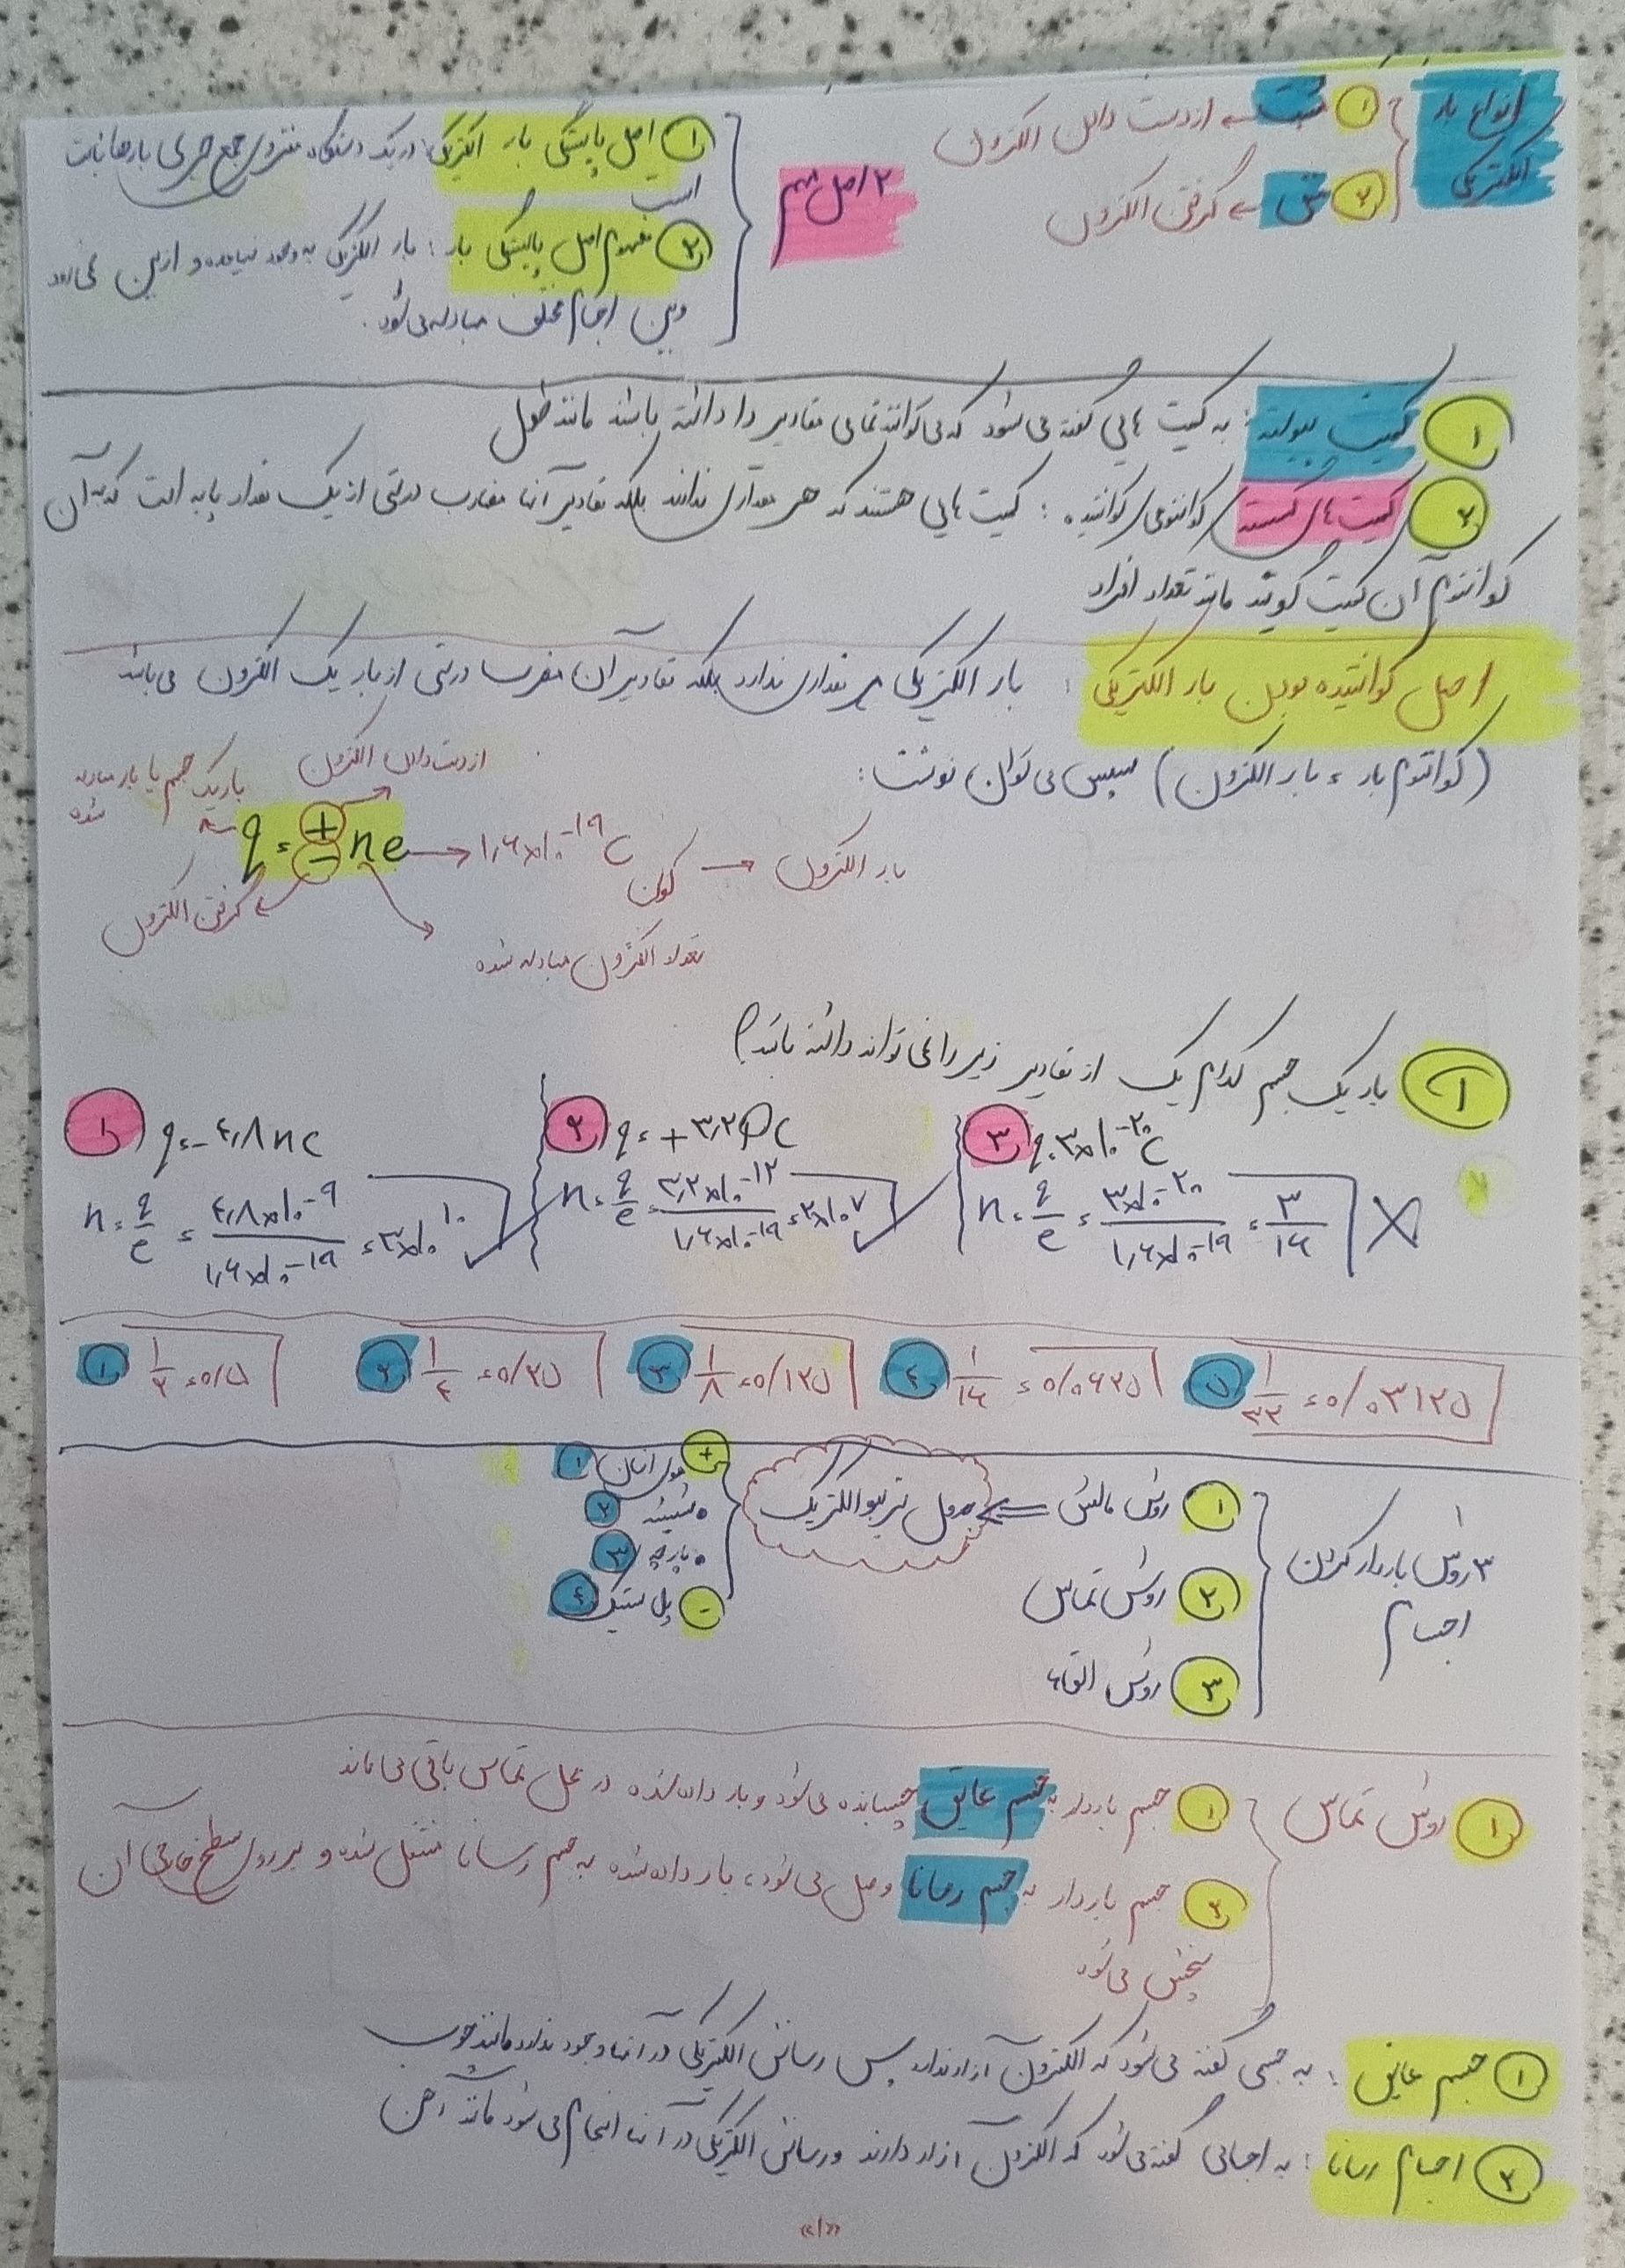 انواع بار الکتریکی
① مثبت ← از دست دادن الکترون
② منفی ← گرفتن الکترون
۲ اصل مهم
① اصل پایستگی بار الکتریکی: در یک دستگاه منزوی جمع جبری بارها ثابت
است
② مفهوم اصل پایستگی بار: بار الکتریکی به وجود نیامده و از بین نمی رود
و بین اجسام مختلف مبادله می شود.
① کمیت پیوسته: به کمیت هایی گفته می شود که می توانند تمامی مقادیر را داشته باشند مانند طول
② کمیت های گسسته / کوانتومی / کوانتیده: کمیت هایی هستند که هر مقداری ندارند بلکه مقادیر آنها مضارب درستی از یک مقدار پایه است که به آن
کوانتوم آن کمیت گویند مانند تعداد افراد
اصل کوانتیده بودن بار الکتریکی: بار الکتریکی هر مقداری ندارد بلکه مقادیر آن مضرب درستی از بار یک الکترون می باشد
(کوانتوم بار = بار الکترون) سپس می توان نوشت:
از دست دادن الکترون
بار یک جسم یا بار مبادله شده
q = ± ne → ۱,۶×۱۰^-۱۹ C کولن → بار الکترون
گرفتن الکترون
تعداد الکترون مبادله شده
① بار یک جسم کدام یک از مقادیر زیر را نمی تواند داشته باشد؟
① q = -۴,۸ nC
n = q/e = ۴,۸×۱۰^-۹ / ۱,۶×۱۰^-۱۹ = ۳×۱۰^۱۰ ✓
② q = +۳,۲ PC
n = q/e = ۳,۲×۱۰^-۱۲ / ۱,۶×۱۰^-۱۹ = ۲×۱۰^۷ ✓
③ q = ۳×۱۰^-۲۰ C
n = q/e = ۳×۱۰^-۲۰ / ۱,۶×۱۰^-۱۹ = ۳/۱۶ ✗
① ۱/۲ = ۰/۵
② ۱/۴ = ۰/۲۵
③ ۱/۸ = ۰/۱۲۵
④ ۱/۱۶ = ۰/۰۶۲۵
⑤ ۱/۳۲ = ۰/۰۳۱۲۵
۳ روش باردار کردن
اجسام
① روش مالش ⇐ جدول تریبو الکتریک
② روش تماس
③ روش القاء
+ موی انسان ①
شیشه ②
پارچه ③
- پلاستیک ④
① روش تماس
① جسم باردار به جسم عایق چسبانده می شود و بار داده شده در محل تماس باقی می ماند
② جسم باردار به جسم رسانا وصل می شود، بار داده شده به جسم رسانا منتقل شده و بر روی سطح خارجی آن
پخش می شود
① جسم عایق: به جسمی گفته می شود که الکترون آزاد ندارد پس رسانش الکتریکی در آنها وجود ندارد مانند چوب
② اجسام رسانا: به اجسامی گفته می شود که الکترون آزاد دارند و رسانش الکتریکی در آنها انجام می شود مانند آهن
«۱»